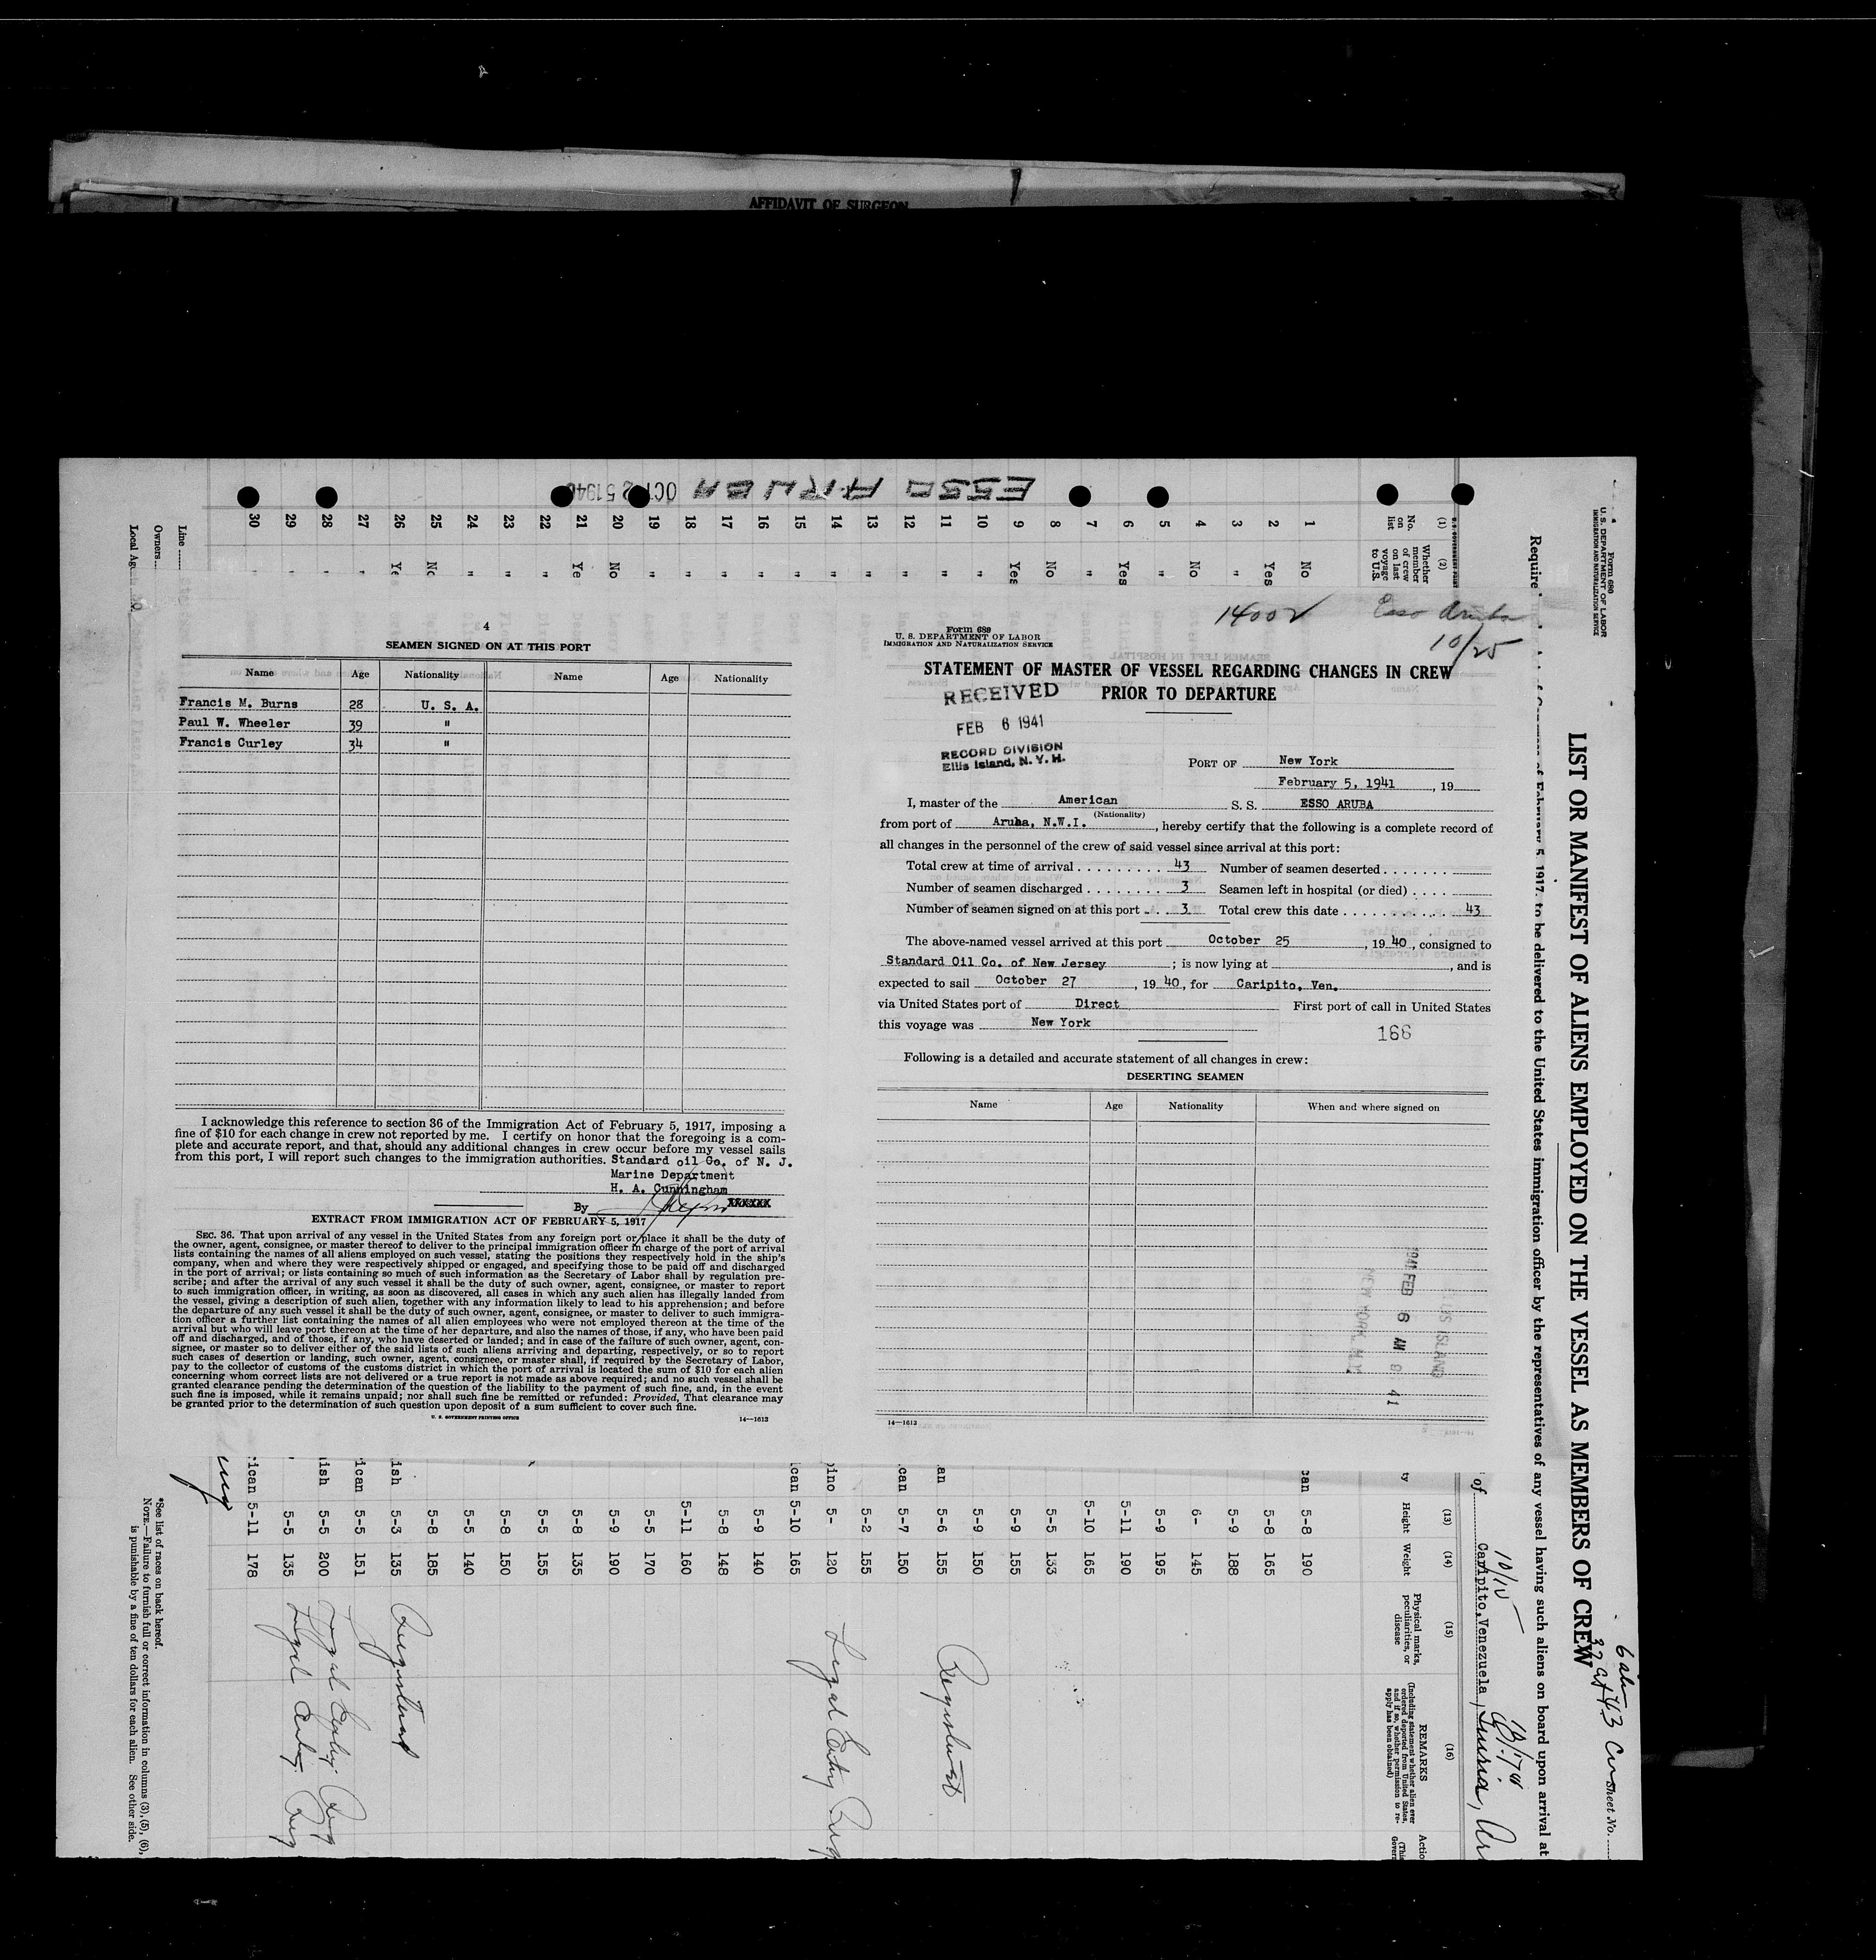 AFFIDAVIT OF SURGEON
ESSO ARUBA
OCT 2 5 1940
14002
Esso Aruba
10/25
4
SEAMEN SIGNED ON AT THIS PORT
Name Age Nationality Name Age Nationality
Francis M. Burns 28 U. S. A.
Paul W. Wheeler 39 "
Francis Curley 34 "
I acknowledge this reference to section 36 of the Immigration Act of February 5, 1917, imposing a
fine of $10 for each change in crew not reported by me. I certify on honor that the foregoing is a com-
plete and accurate report, and that, should any additional changes in crew occur before my vessel sails
from this port, I will report such changes to the immigration authorities. Standard oil Co. of N. J.
Marine Department
H. A. Cunningham
By
EXTRACT FROM IMMIGRATION ACT OF FEBRUARY 5, 1917
SEC. 36. That upon arrival of any vessel in the United States from any foreign port or place it shall be the duty of
the owner, agent, consignee, or master thereof to deliver to the principal immigration officer in charge of the port of arrival
lists containing the names of all aliens employed on such vessel, stating the positions they respectively hold in the ship's
company, when and where they were respectively shipped or engaged, and specifying those to be paid off and discharged
in the port of arrival; or lists containing so much of such information as the Secretary of Labor shall by regulation pre-
scribe; and after the arrival of any such vessel it shall be the duty of such owner, agent, consignee, or master to report
to such immigration officer, in writing, as soon as discovered, all cases in which any such alien has illegally landed from
the vessel, giving a description of such alien, together with any information likely to lead to his apprehension; and before
the departure of any such vessel it shall be the duty of such owner, agent, consignee, or master to deliver to such immigra-
tion officer a further list containing the names of all alien employees who were not employed thereon at the time of the
arrival but who will leave port thereon at the time of her departure, and also the names of those, if any, who have been paid
off and discharged, and of those, if any, who have deserted or landed; and in case of the failure of such owner, agent, con-
signee, or master so to deliver either of the said lists of such aliens arriving and departing, respectively, or so to report
such cases of desertion or landing, such owner, agent, consignee, or master shall, if required by the Secretary of Labor,
pay to the collector of customs of the customs district in which the port of arrival is located the sum of $10 for each alien
concerning whom correct lists are not delivered or a true report is not made as above required; and no such vessel shall be
granted clearance pending the determination of the question of the liability to the payment of such fine, and, in the event
such fine is imposed, while it remains unpaid; nor shall such fine be remitted or refunded: Provided, That clearance may
be granted prior to the determination of such question upon deposit of a sum sufficient to cover such fine.
U. S. GOVERNMENT PRINTING OFFICE 14—1613
Form 689
U. S. DEPARTMENT OF LABOR
IMMIGRATION AND NATURALIZATION SERVICE
STATEMENT OF MASTER OF VESSEL REGARDING CHANGES IN CREW
PRIOR TO DEPARTURE
RECEIVED
FEB 6 1941
RECORD DIVISION
Ellis Island, N. Y. H.
PORT OF New York
February 5, 1941, 19
I, master of the American S. S. ESSO ARUBA
(Nationality)
from port of Aruba, N.W.I., hereby certify that the following is a complete record of
all changes in the personnel of the crew of said vessel since arrival at this port:
Total crew at time of arrival 43 Number of seamen deserted
Number of seamen discharged 3 Seamen left in hospital (or died)
Number of seamen signed on at this port 3 Total crew this date 43
The above-named vessel arrived at this port October 25, 19 40, consigned to
Standard Oil Co. of New Jersey; is now lying at , and is
expected to sail October 27, 19 40, for Caripito, Ven.
via United States port of Direct First port of call in United States
this voyage was New York
166
Following is a detailed and accurate statement of all changes in crew:
DESERTING SEAMEN
Name Age Nationality When and where signed on
1941 FEB 6 AM 8 41
ELLIS ISLAND
NEW YORK, N.Y.
14—1613
Form 680
U. S. DEPARTMENT OF LABOR
IMMIGRATION AND NATURALIZATION SERVICE
LIST OR MANIFEST OF ALIENS EMPLOYED ON THE VESSEL AS MEMBERS OF CREW
Sheet No.
Require
of February 5, 1917, to be delivered to the United States immigration officer by the representatives of any vessel having such aliens on board upon arrival at
of Caripito, Venezuela,
(1) (2) (13) (14) (15) (16)
No. on list
Whether member of crew on last voyage to U.S.
Height
Weight
Physical marks, peculiarities, or disease
REMARKS
(Including statement whether alien ever ordered deported from United States, and if so, whether permission to re-apply has been obtained)
1 No can 5-8 190
2 Yes 5-8 165
3 " 5-9 188
4 No 6- 145
5 " 5-9 195
6 Yes 5-11 190
7 " 5-10 165
8 No 5-5 133
9 Yes 5-9 155
10 " 5-9 150
11 " an 5-6 155
12 " can 5-7 150
13 " 5-2 155
14 " pino 5- 120 Legal Entry
15 " can 5-10 165
16 " 5-9 140
17 " 5-8 148
18 " 5-11 160
19 " 5-5 170
20 No 5-9 190
21 Ye 5-8 135
22 " 5-5 155
23 " 5-8 150
24 " 5-5 140
25 No 5-8 185
26 Ye ish 5-3 135
27 " ican 5-5 151
28 " ish 5-5 200
29 " 5-5 135
30 " ican 5-11 178
Line
Owners
Local Ag
*See list of races on back hereof.
NOTE.—Failure to furnish full or correct information in columns (3), (5), (6),
is punishable by a fine of ten dollars for each alien. See other side.